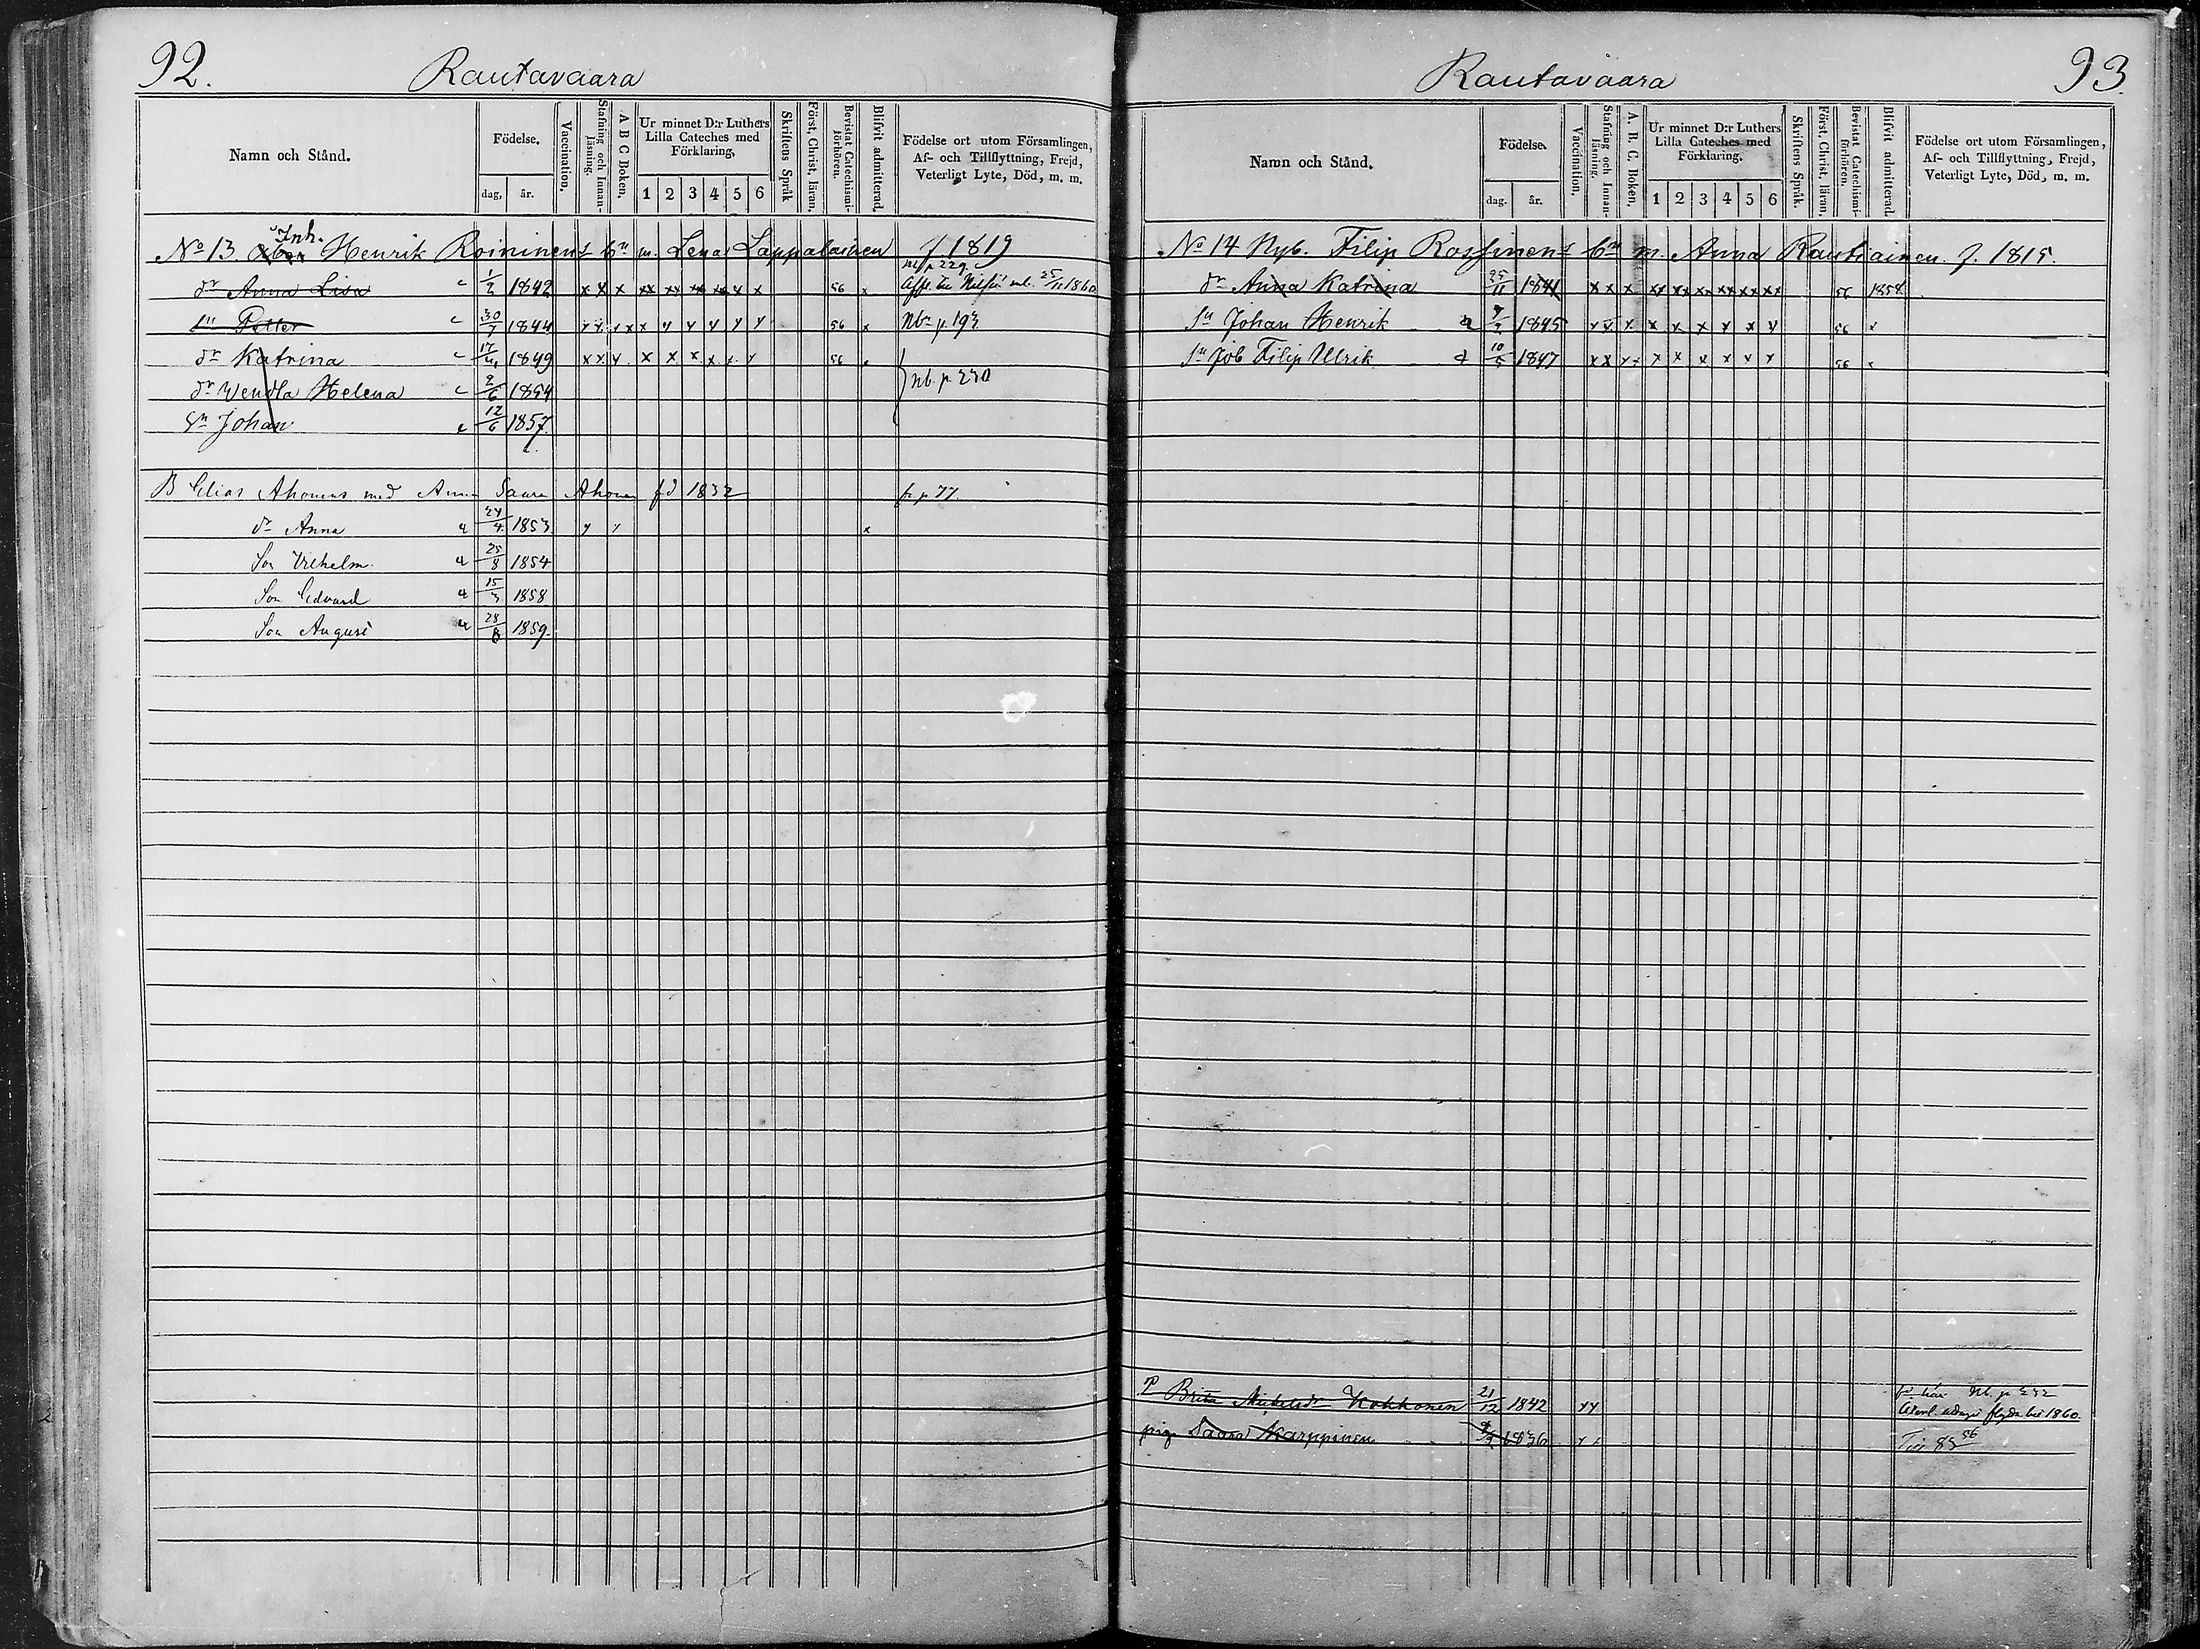 92.
Rautavaara
Namn och Stånd.
Födelse.
dag, år.
Vaccination.
Stafning och Innan-läsning.
A B C Boken.
Ur minnet D:r Luthers Lilla Cateches med Förklaring.
1 2 3 4 5 6
Skriftens Språk
Först. Christ. läran.
Bevistat Catechismi-förhören.
Blifvit admitterad.
Födelse ort utom Församlingen,
Af- och Tillflyttning, Frejd,
Veterligt Lyte, Död, m. m.
Inh.
No 13 Henrik Roininens bn m. Lena Lappalainen f 1819
dr Anna Lisa 1/2 1842 x x x xx xx xx xx x x 56 x 25/11 1860
sn Petter 30/7 1844 x x x x x x x x x x 56 x Nb p. 193
dr Katrina 17/4 1849 x x x x x x x x x 56 x
dr Wendla Helena 2/6 1854 Nb. p. 230
sn Johan 12/6 1857.
B Elias Ahonens med Anna Saara Ahonen fd 1832 fr p 77.
dr Anna 24/4 1853
Son Vilhelm 25/8 1854
Son Edvard 15/3 1858
Son August 28/8 1859.
93.
Rautavaara
Namn och Stånd.
Födelse.
dag. år.
Vaccination.
Stafning och Innan-läsning.
A. B. C. Boken.
Ur minnet D:r Luthers Lilla Cateches med Förklaring.
1 2 3 4 5 6
Skriftens Språk.
Först. Christ. läran.
Bevistat Catechismi-förhören.
Blifvit admitterad.
Födelse ort utom Församlingen,
Af- och Tillflyttning, Frejd,
Veterligt Lyte, Död, m. m.
No 14 Nyb. Filip Rossinens bn m. Anna Rautiainen. f. 1815.
dr Anna Katrina 25/11 1841 x x x xx xx xx xx xx xx 56 1858.
sn Johan Henrik 1845 x x x x x x x x x 56 x
sn Job Filip Ulrik 1847 x x x x x x x x x x 56 x
P Brita Kokkonen 21/12 1842 Nb. p 232
1860.
pig. Saara Karppinen 1836 Till 85 56